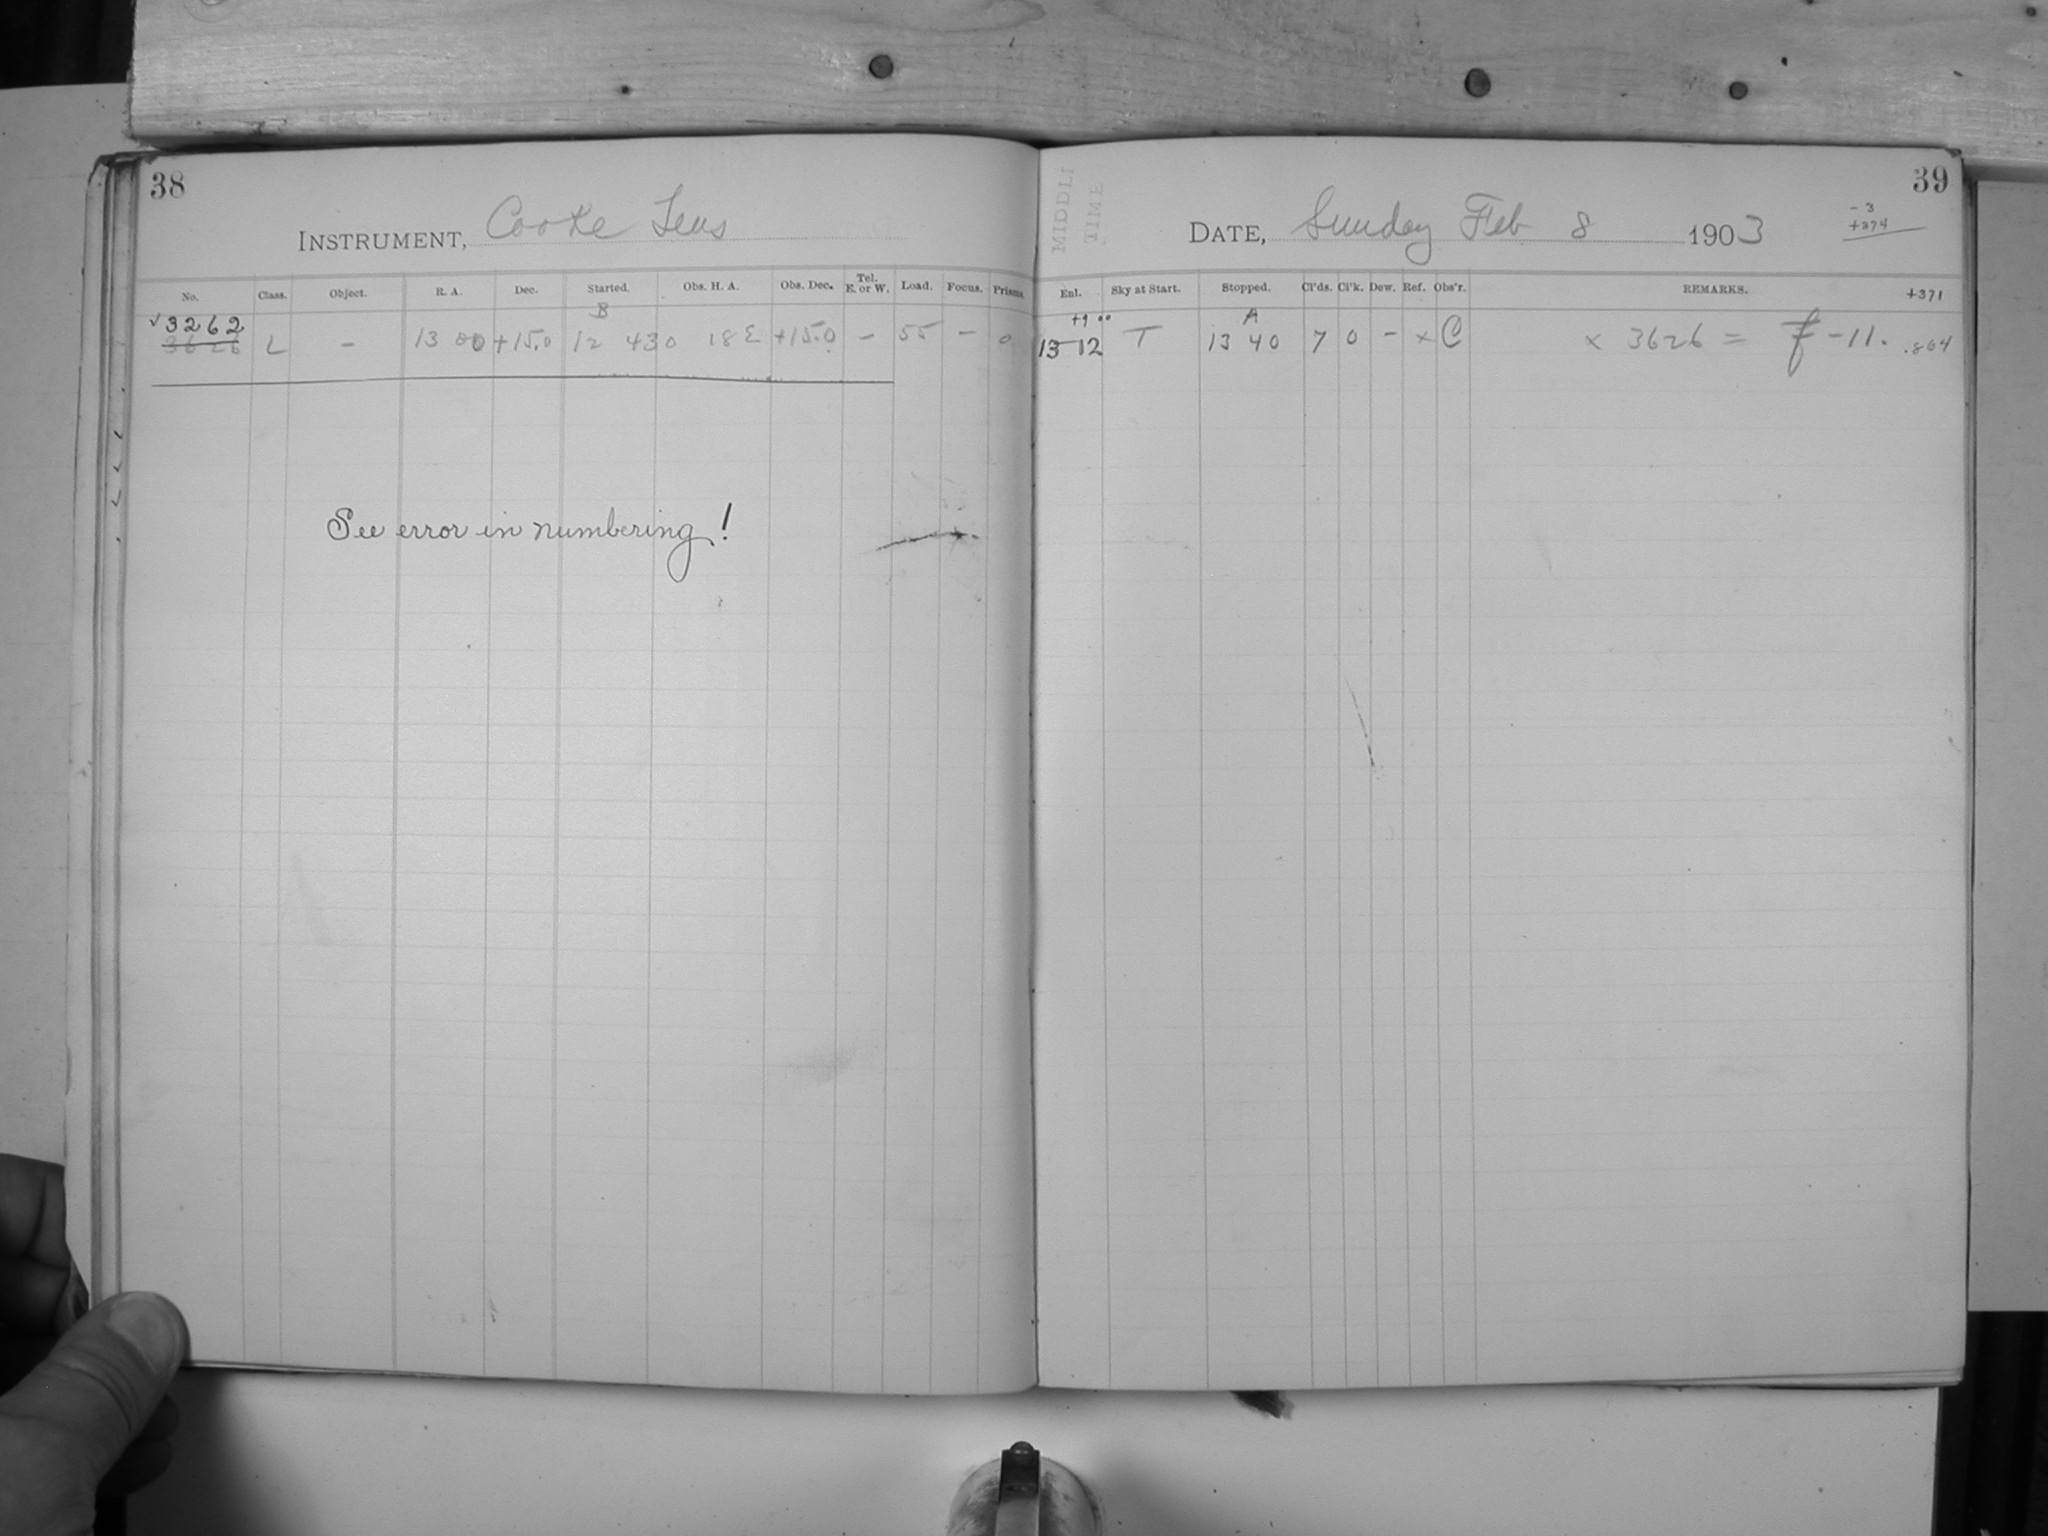 38
INSTRUMENT, Cooke Lens
No. Class. Object. R. A. Dec. Started. Obs. H. A. Obs. Dec. Tel. E. or W. Load. Focus. Prisms.
B
√ 3262
3626 L – 13 00 +15.0 12 43 0 18 E +15.0 – 55 – 0
See error in numbering!
MIDDLE
TIME
39
DATE, Sunday Feb 8 1903
-3
+374
Enl. Sky at Start. Stopped. Cl'ds. Cl'k. Dew. Ref. Obs'r. REMARKS. +371
+9 00 A
13 12 T 13 40 7 0 – x C x 3626 = f -11. .864